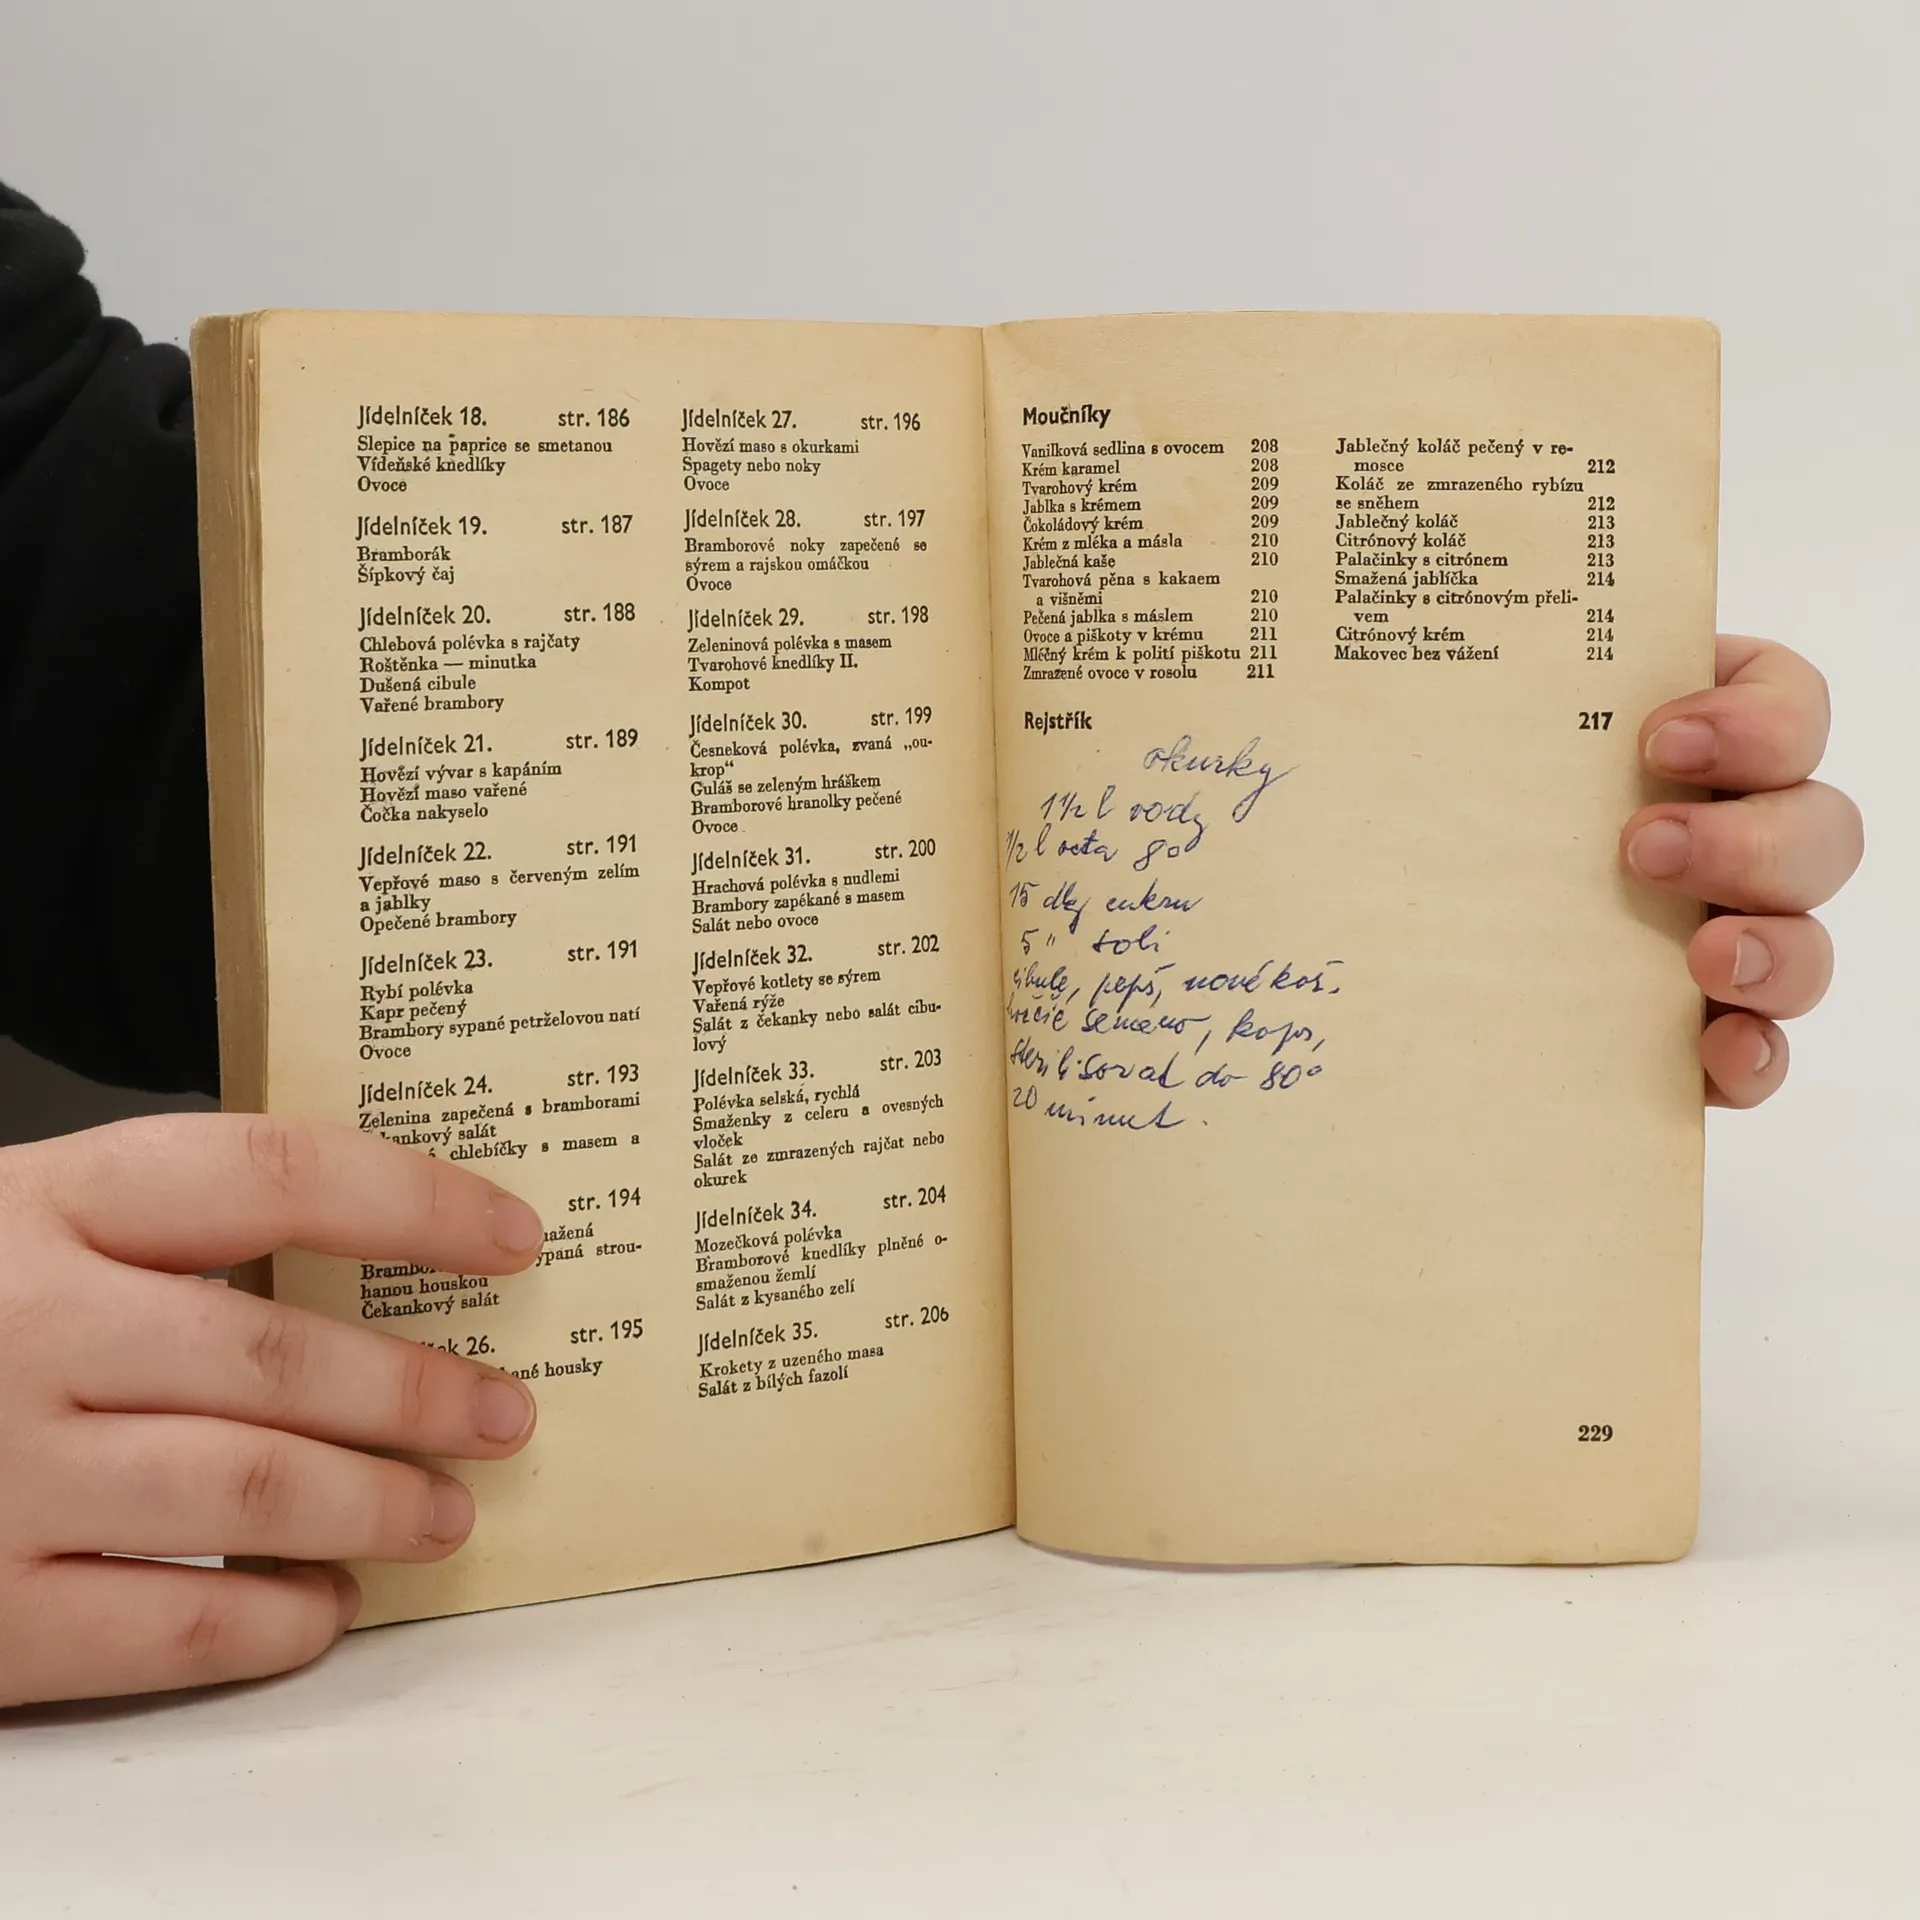 Jídelníček 18. str. 186
Slepice na paprice se smetanou
Vídeňské knedlíky
Ovoce
Jídelníček 19. str. 187
Bramborák
Šípkový čaj
Jídelníček 20. str. 188
Chlebová polévka s rajčaty
Roštěnka — minutka
Dušená cibule
Vařené brambory
Jídelníček 21. str. 189
Hovězí vývar s kapáním
Hovězí maso vařené
Čočka nakyselo
Jídelníček 22. str. 191
Vepřové maso s červeným zelím
a jablky
Opečené brambory
Jídelníček 23. str. 191
Rybí polévka
Kapr pečený
Brambory sypané petrželovou natí
Ovoce
Jídelníček 24. str. 193
Zelenina zapečená s bramborami
salát
chlebíčky s masem a
str. 194
hanou houskou
Čekankový salát
26. str. 195
housky
Jídelníček 27. str. 196
Hovězí maso s okurkami
Špagety nebo noky
Ovoce
Jídelníček 28. str. 197
Bramborové noky zapečené se
sýrem a rajskou omáčkou
Ovoce
Jídelníček 29. str. 198
Zeleninová polévka s masem
Tvarohové knedlíky II.
Kompot
Jídelníček 30. str. 199
Česneková polévka, zvaná „ou-
krop“
Guláš se zeleným hráškem
Bramborové hranolky pečené
Ovoce
Jídelníček 31. str. 200
Hrachová polévka s nudlemi
Brambory zapékané s masem
Salát nebo ovoce
Jídelníček 32. str. 202
Vepřové kotlety se sýrem
Vařená rýže
Salát z čekanky nebo salát cibu-
lový
Jídelníček 33. str. 203
Polévka selská, rychlá
Smaženky z celeru a ovesných
vloček
Salát ze zmrazených rajčat nebo
okurek
Jídelníček 34. str. 204
Mozečková polévka
Bramborové knedlíky plněné o-
smaženou žemlí
Salát z kysaného zelí
Jídelníček 35. str. 206
Krokety z uzeného masa
Salát z bílých fazolí
Moučníky
Vanilková sedlina s ovocem 208
Krém karamel 208
Tvarohový krém 209
Jablka s krémem 209
Čokoládový krém 209
Krém z mléka a másla 210
Jablečná kaše 210
Tvarohová pěna s kakaem
a višněmi 210
Pečená jablka s máslem 210
Ovoce a piškoty v krému 211
Mléčný krém k polití piškotu 211
Zmražené ovoce v rosolu 211
Jablečný koláč pečený v re-
mosce 212
Koláč ze zmrazeného rybízu
se sněhem 212
Jablečný koláč 213
Citrónový koláč 213
Palačinky s citrónem 213
Smažená jablíčka 214
Palačinky s citrónovým přeli-
vem 214
Citrónový krém 214
Makovec bez vážení 214
Rejstřík 217
okurky
1 1/2 l vody
1/2 l octa 8°
15 dkg cukru
5 " soli
cibule, pepř, nové koř.
semeno, kopr,
sterilisovat do 80°
20 minut.
229